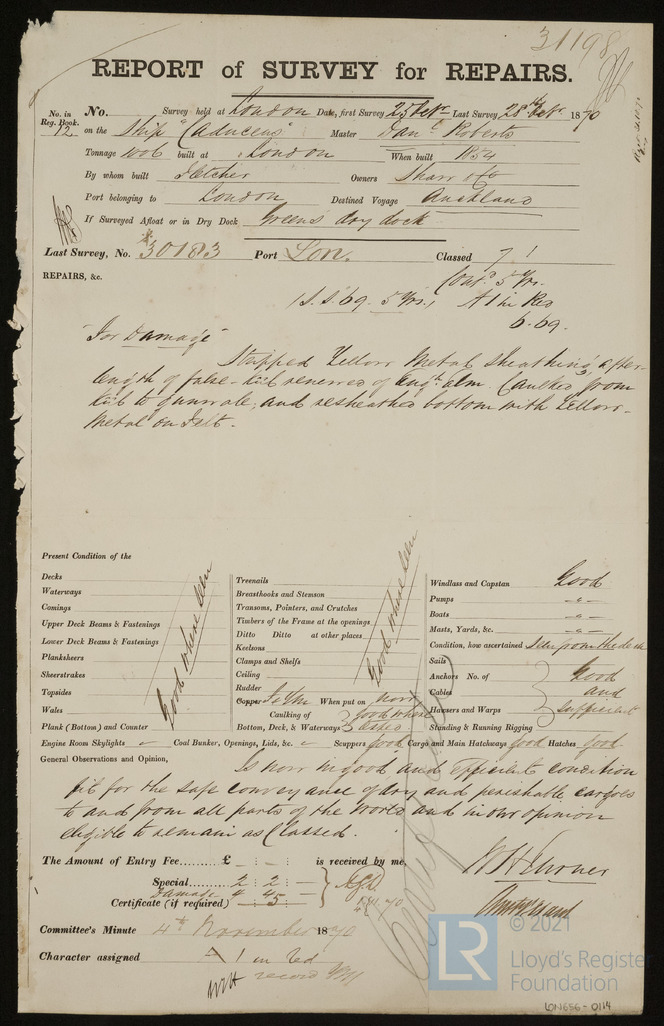 31198
REPORT of SURVEY for REPAIRS.
No. in Reg. Book. 12
No. Survey held at London Date, first Survey 25 Octr. Last Survey 28th Octr. 1870
on the Ship "Caduceus" Master Danl. Roberts
Tonnage 1006 built at London When built 1854
By whom built Fletcher Owners Shaw & Co
Port belonging to London Destined Voyage Auckland
If Surveyed Afloat or in Dry Dock Green's dry dock
Last Survey, No. 30183 Port Lon. Classed 7 1
REPAIRS, &c. Contd. 5 Yrs.
(S.S. 69. 5 Yrs.) A 1 in Red
6.69.
"For Damage"
Stripped Yellow Metal sheathing, after-
length of false-keel renewed of Engh. elm. Caulked from
keel to gunwale, and resheathed bottom with Yellow-
Metal on Felt.
Present Condition of the
Decks
Waterways
Comings
Upper Deck Beams & Fastenings
Lower Deck Beams & Fastenings
Planksheers
Sheerstrakes
Topsides
Wales
Plank (Bottom) and Counter
Good where seen
Treenails
Breasthooks and Stemson
Transoms, Pointers, and Crutches
Timbers of the Frame at the openings
Ditto Ditto at other places
Keelsons
Clamps and Shelfs
Ceiling
Rudder
Good where seen
Copper F & YM When put on now
Caulking of Bottom, Deck, & Waterways good where
Windlass and Capstan Good
Pumps -"-
Boats -"-
Masts, Yards, &c. -"-
Condition, how ascertained Seen from the deck
Sails
Anchors No. of
Cables
Hawsers and Warps
Good and sufficient
Standing & Running Rigging
Engine Room Skylights - Coal Bunker, Openings, Lids, &c. - Scuppers good Cargo and Main Hatchways good Hatches good
General Observations and Opinion, Is now in good and efficient condition
fit for the safe conveyance of dry and perishable cargoes
to and from all parts of the World and in our opinion
eligible to remain as Classed.
The Amount of Entry Fee......... £ - : - : is received by me,
Special......... 2 : 2 : -
Damage 4 : 4 : -
Certificate (if required) - : 5 :
Committee's Minute 4th November 1870
Character assigned A 1 in red
record
© 2021
LR
Lloyd's Register
Foundation
LON656-0114